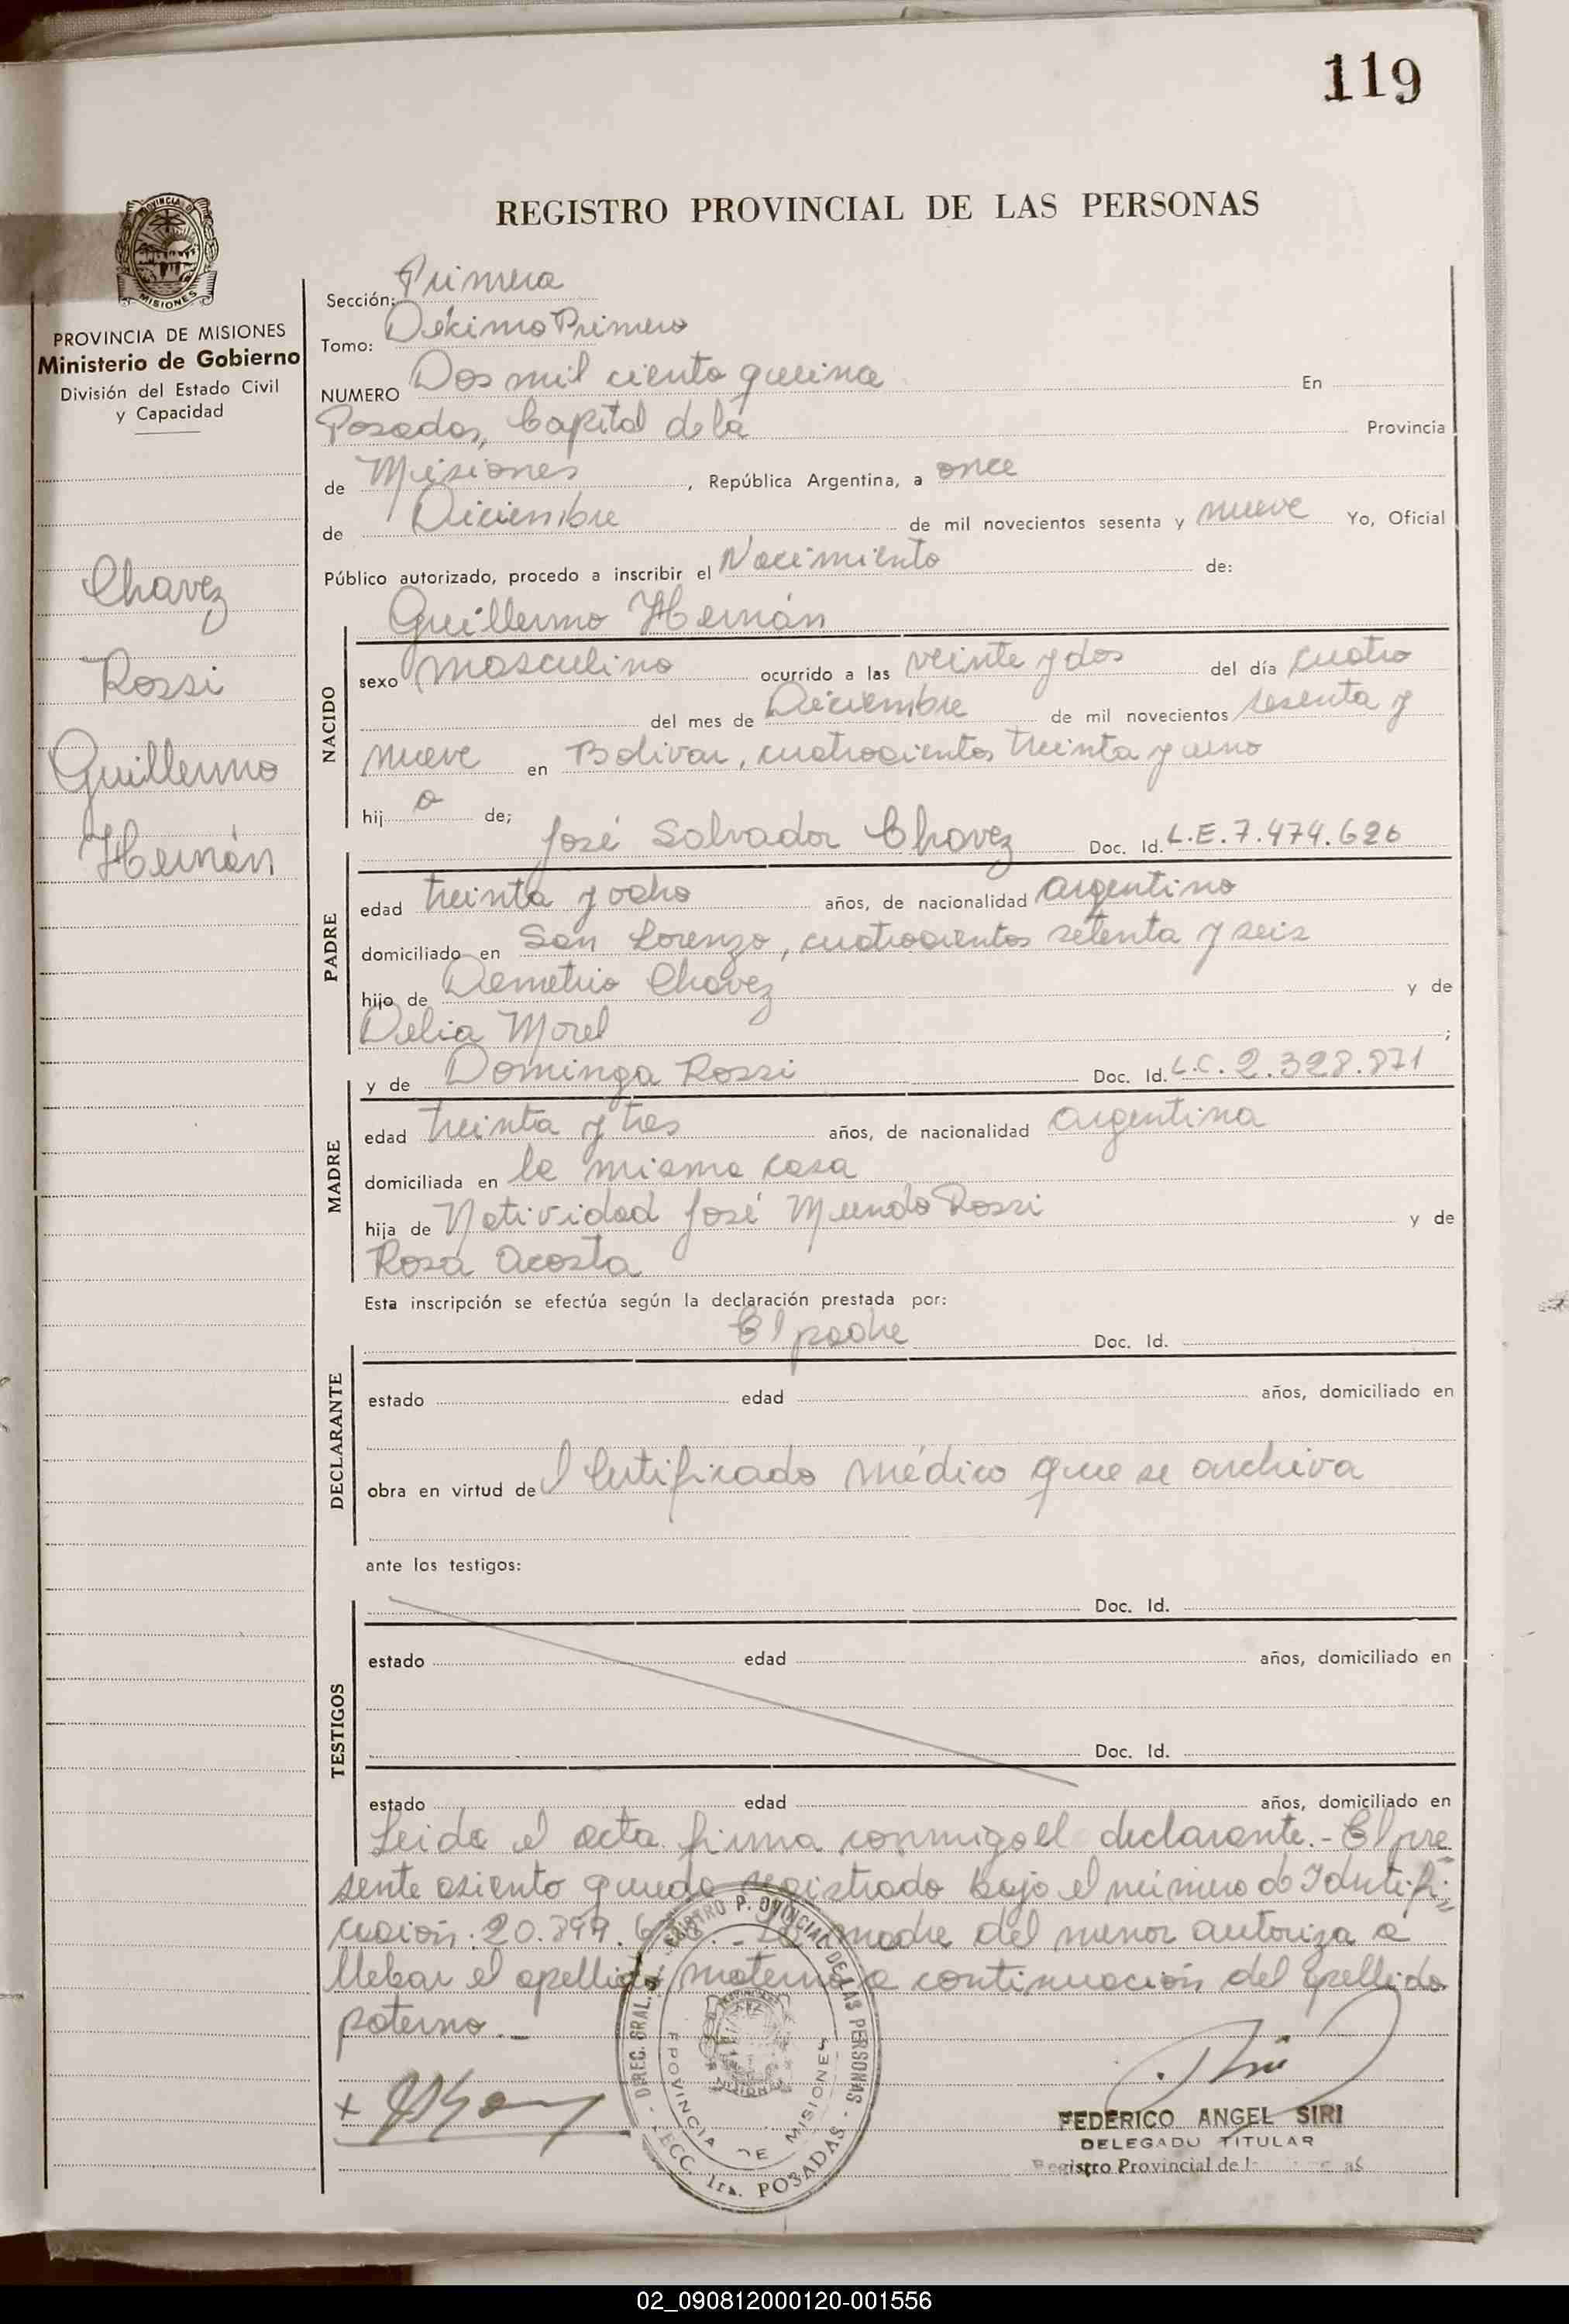 119
REGISTRO PROVINCIAL DE LAS PERSONAS
PROVINCIA DE MISIONES
Ministerio de Gobierno
División del Estado Civil
y Capacidad
Chavez
Rossi
Guillermo
Hernán
Sección: Primera
Tomo: Décimo Primero
NUMERO Dos mil ciento quince En
Posadas, Capital de la Provincia
de Misiones, República Argentina, a once
de Diciembre de mil novecientos sesenta y nueve Yo, Oficial
Público autorizado, procedo a inscribir el Nacimiento de:
Guillermo Hernán
NACIDO
sexo masculino ocurrido a las veinte y dos del día cuatro
del mes de Diciembre de mil novecientos sesenta y
nueve en Bolivar, cuatrocientos treinta y uno
hijo de;
José Salvador Chavez Doc. Id. L.E. 7.474.626
PADRE
edad treinta y ocho años, de nacionalidad argentino
domiciliado en San Lorenzo, cuatrocientos setenta y seis
hijo de Demetrio Chavez y de
Delia Morel ;
y de Dominga Rossi Doc. Id. L.C. 2.328.871
MADRE
edad treinta y tres años, de nacionalidad argentina
domiciliada en la misma casa
hija de Natividad José Mundo Rossi y de
Rosa Acosta
Esta inscripción se efectúa según la declaración prestada por:
El padre Doc. Id.
DECLARANTE
estado edad años, domiciliado en
obra en virtud del Certificado médico que se archiva
ante los testigos:
Doc. Id.
TESTIGOS
estado edad años, domiciliado en
Doc. Id.
estado edad años, domiciliado en
Leida el acta firma conmigo el declarante.- El pre
sente asiento queda registrado bajo el número de Identifi=
cación: madre del menor autoriza a
llebar el apellido materno a continuación del apellido
paterno.-
DIREC. GRAL. PROVINCIAL DE LAS PERSONAS
PROVINCIA DE MISIONES
SECC. 1ra. POSADAS
FEDERICO ANGEL SIRI
DELEGADO TITULAR
Registro Provincial de
02_090812000120-001556